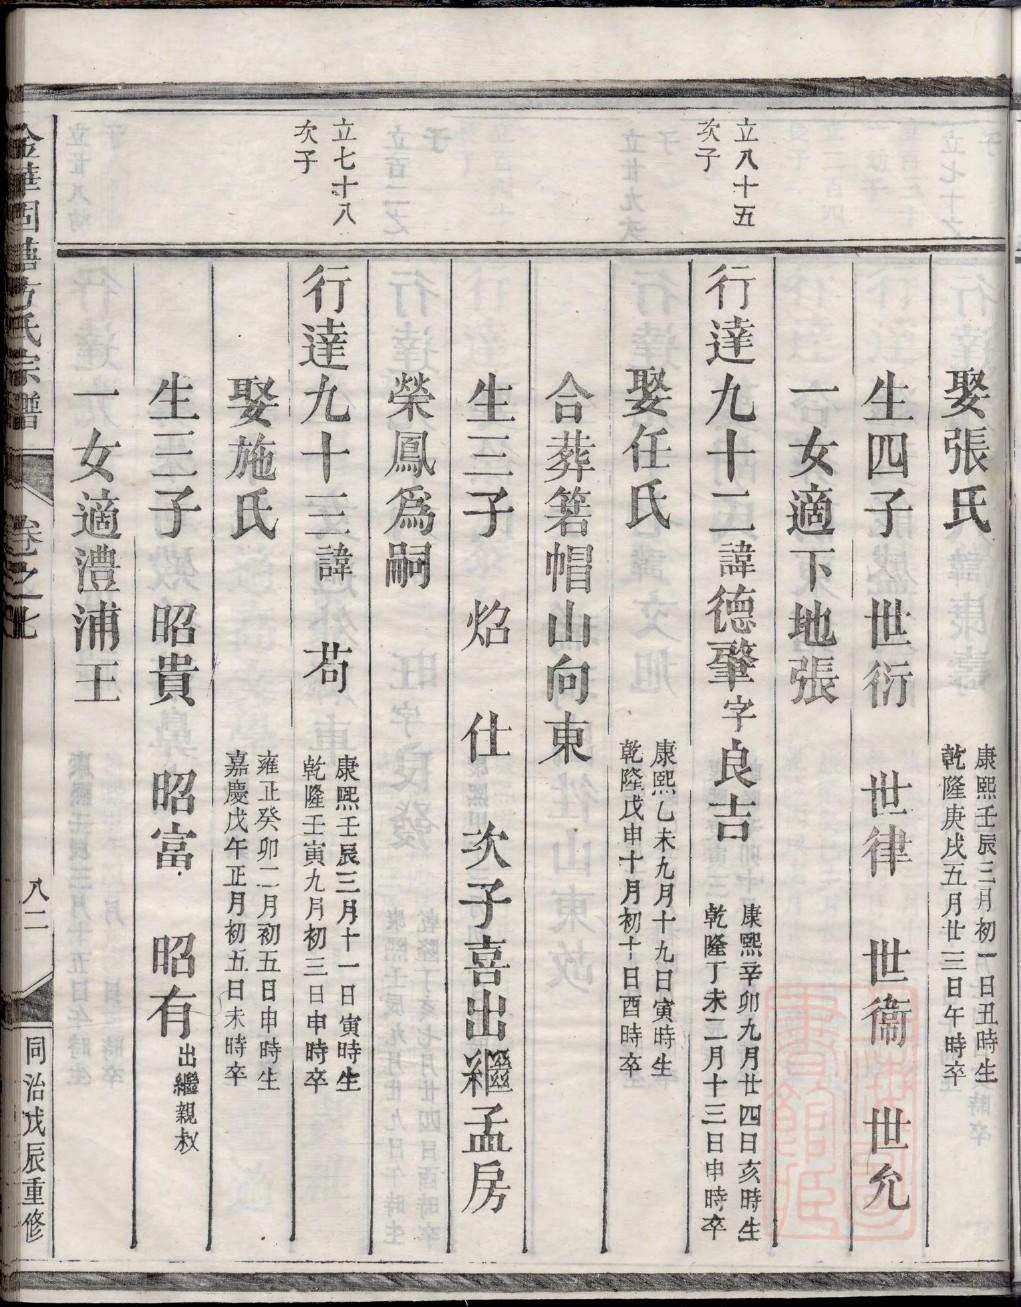 娶張氏
康熙壬辰三月初一日丑時生
乾隆庚戌五月廿三日午時卒
生四子 世衍 世律 世衞 世允
一女適下地張
立八十五
次子
行達九十二諱德肇字良吉
康熙辛卯九月廿四日亥時生
乾隆丁未二月十三日申時卒
娶任氏
康熙乙未九月十九日寅時生
乾隆戊申十月初十日酉時卒
合葬箬帽山向東
生三子 焰 仕 次子喜出繼孟房
榮鳳爲嗣
立七十八
次子
行達九十三諱 苟
康熙壬辰三月十一日寅時生
乾隆壬寅九月初三日申時卒
娶施氏
雍正癸卯二月初五日申時生
嘉慶戊午正月初五日未時卒
生三子 昭貴 昭富 昭有出繼親叔
一女適澧浦王
方氏宗譜 卷之七 八二 同治戊辰重修